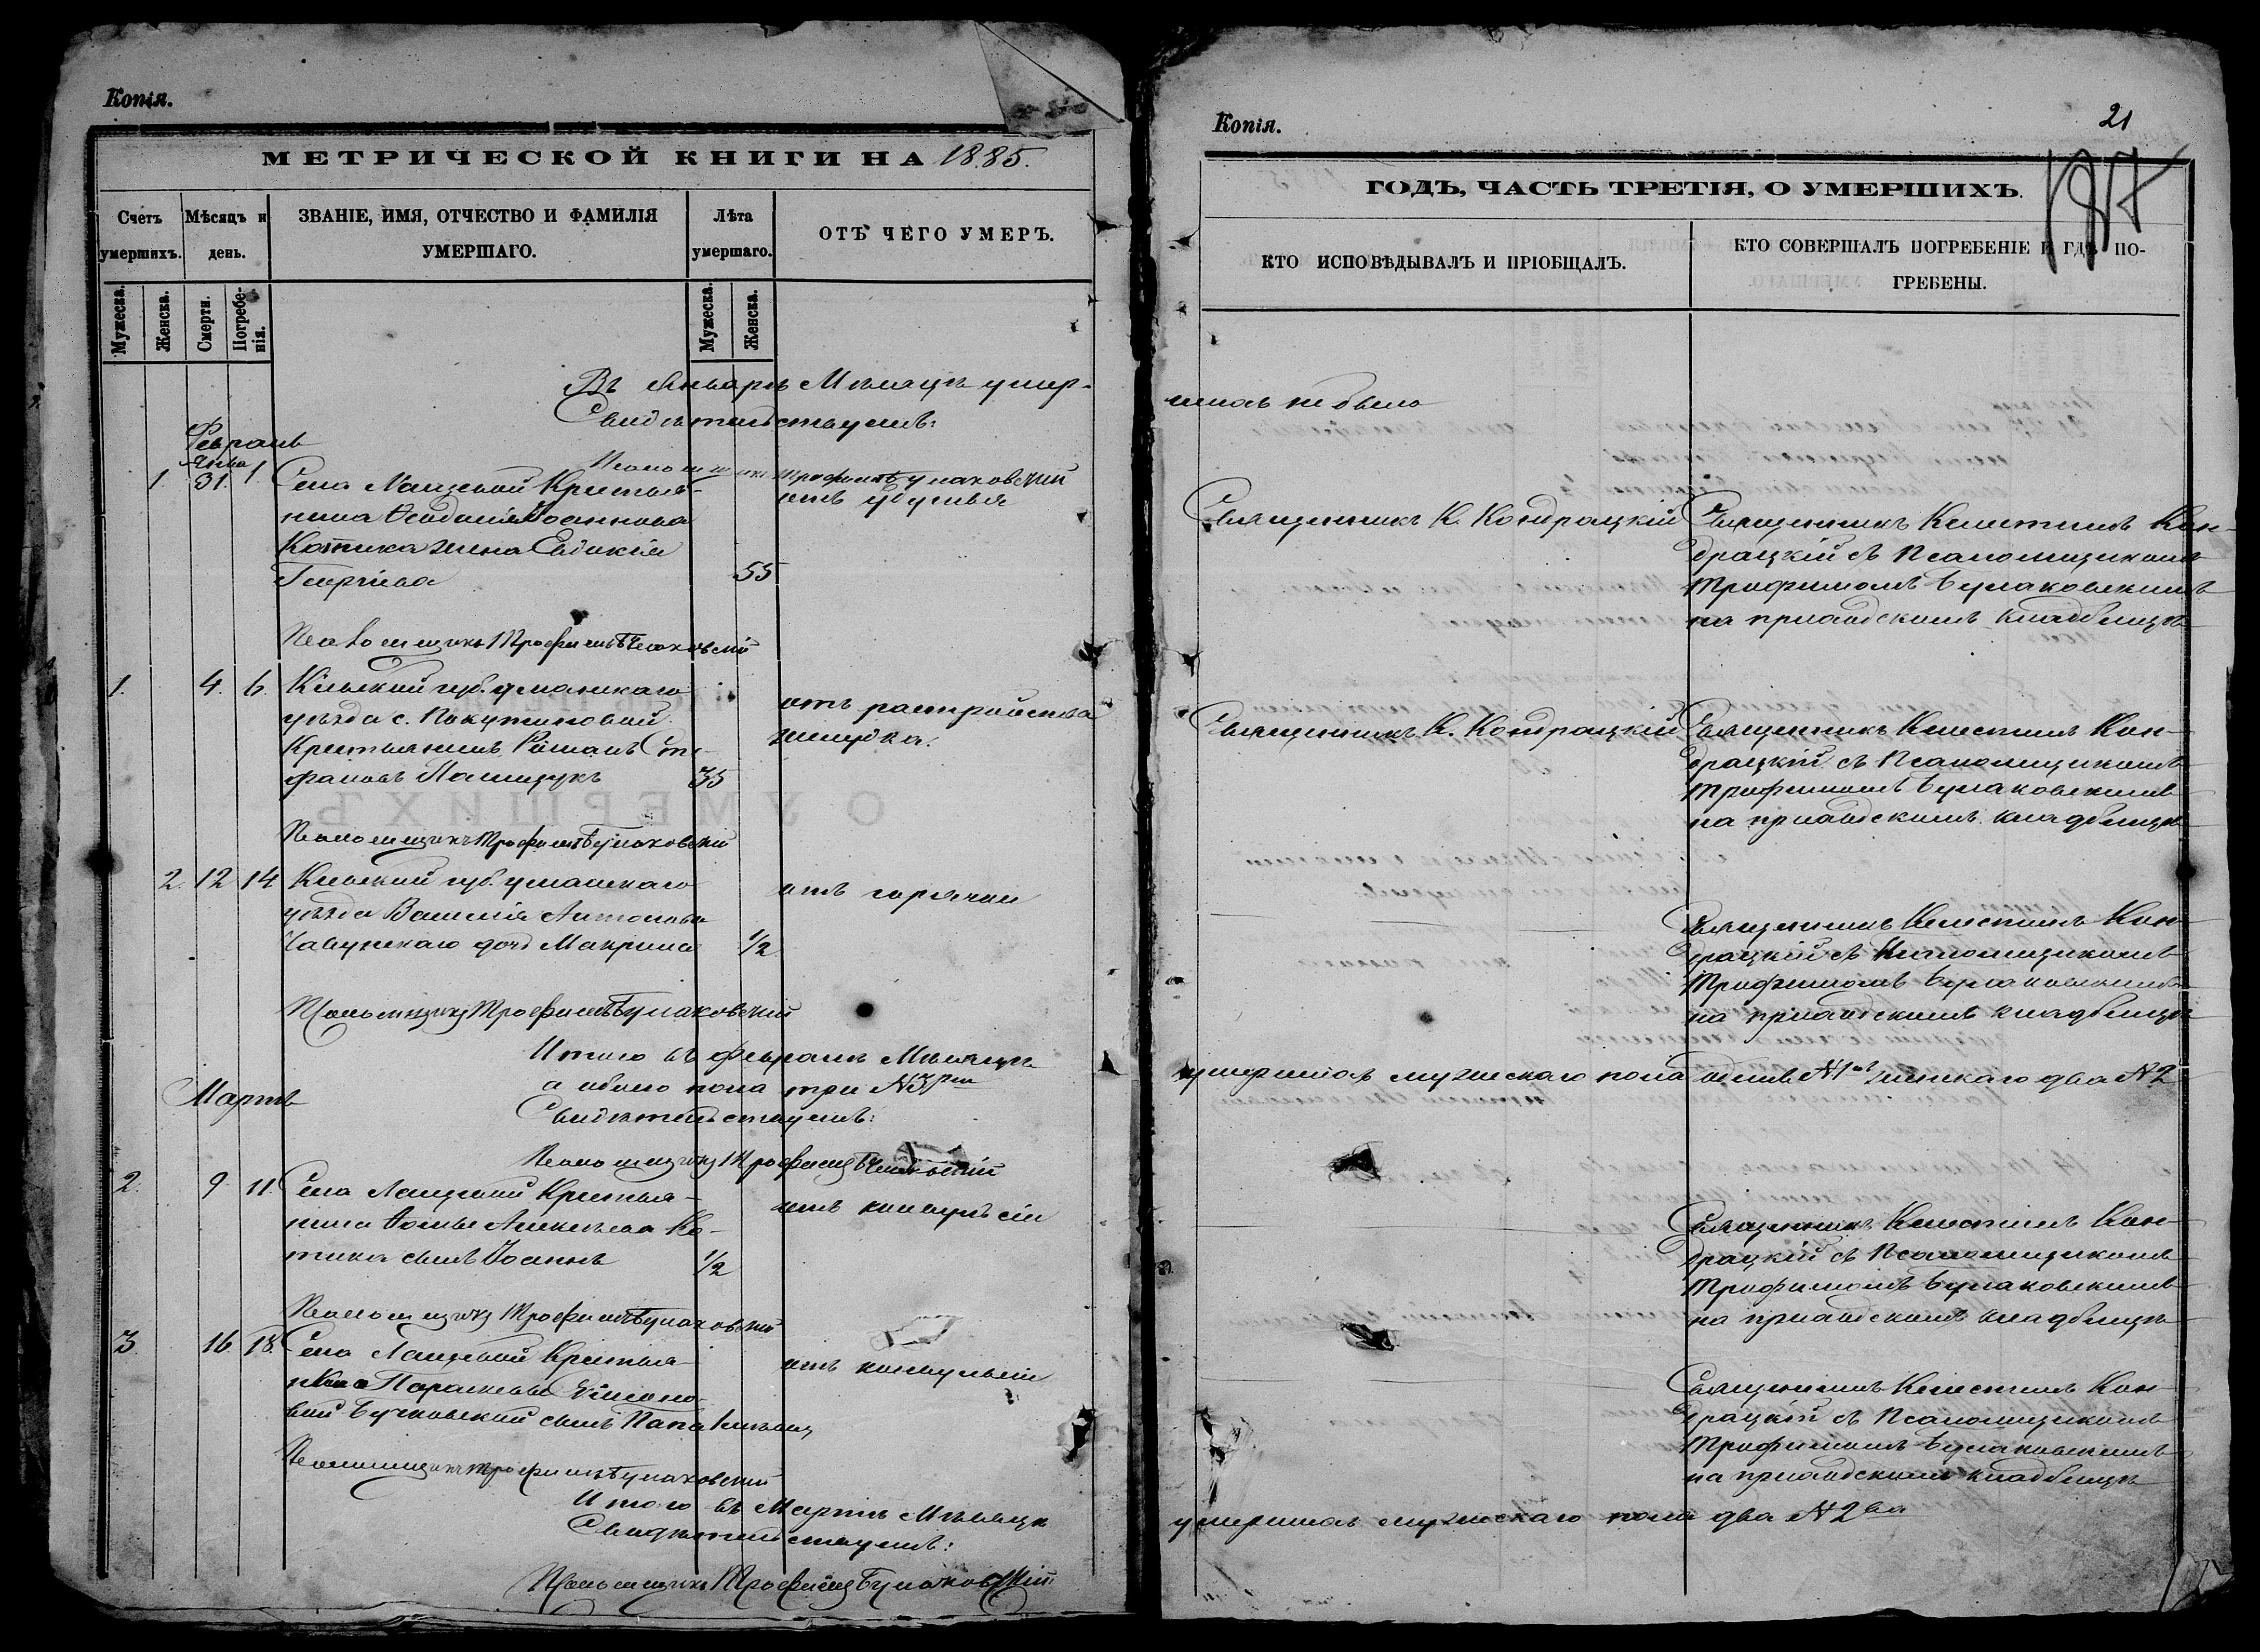 Копія.
МЕТРИЧЕСКОЙ КНИГИ НА 1885.
Счетъ умершихъ.
Мѣсяцъ и день.
ЗВАНІЕ, ИМЯ, ОТЧЕСТВО И ФАМИЛІЯ УМЕРШАГО.
Лѣта умершаго.
ОТЪ ЧЕГО УМЕРЪ.
Мужеска.
Женска.
Смерти.
Погребенія.
Мужеска.
Женска.
Въ Январѣ Мѣсяцѣ умер-
Свидѣтельствуемъ:
Псаломщикъ Трофимъ Булаховскій
Февраль
Янва
1 31. 1. Села Крестья-
нина Феодосія Іоаннова
Котика жена Евдокія
Георгіева
55
отъ удушья
Псаломщикъ Трофимъ Булаховскій
1. 4. 6. Кіевской губ. уманскаго
уѣзда с.
Крестьянинъ Романъ Сте-
фановъ Полищукъ
35
отъ растройства
желудка.
Псаломщикъ Трофимъ Булаховскій
2. 12 14 Кіевской губ. уманскаго
уѣзда Василія Антонова
дочь Макрина
1/2
отъ горячки
Псаломщикъ Трофимъ Булаховскій
Итого въ Февралѣ Мѣсяцѣ
а обоего пола три №3ри
Свидѣтельствуемъ:
Мартъ
Псаломщикъ Трофимъ Булаховскій
2. 9 11. Села Крестья-
нина Фомы Алексѣева Ко-
тика сынъ Іоаннъ
1/2
отъ конвульсіи
Псаломщикъ Трофимъ Булаховскій
3. 16. 18. Села Крестья-
нки Параскевы Симоно-
вой Бучковской сынъ
отъ конвульсіи
Псаломщикъ Трофимъ Булаховскій
Итого въ Мартѣ Мѣсяцѣ
Свидѣтельствуемъ:
Псаломщикъ Трофимъ Булаховскій
Копія.
21
ГОДЪ, ЧАСТЬ ТРЕТІЯ, О УМЕРШИХЪ.
КТО ИСПОВѢДЫВАЛЪ И ПРІОБЩАЛЪ.
КТО СОВЕРШАЛЪ ПОГРЕБЕНІЕ И ГДѢ ПО-
ГРЕБЕНЫ.
шихъ не было
Священникъ К. Кондрацкій
Священникъ Келестинъ Кон-
драцкій съ Псаломщикомъ
Трофимомъ Булаховскимъ
на приходскомъ кладбищѣ
Священникъ К. Кондрацкій
Священникъ Келестинъ Кон-
драцкій съ Псаломщикомъ
Трофимомъ Булаховскимъ
на приходскомъ кладбищѣ
Священникъ Келестинъ Кон-
драцкій съ Псаломщикомъ
Трофимомъ Булаховскимъ
на приходскомъ кладбищѣ
умершихъ мужескаго пола одинъ №1нъ женскаго два №2
Священникъ Келестинъ Кон-
драцкій съ Псаломщикомъ
Трофимомъ Булаховскимъ
на приходскомъ кладбищѣ
Священникъ Келестинъ Кон-
драцкій съ Псаломщикомъ
Трофимомъ Булаховскимъ
на приходскомъ кладбищѣ
умершихъ мужескаго пола два №2ва